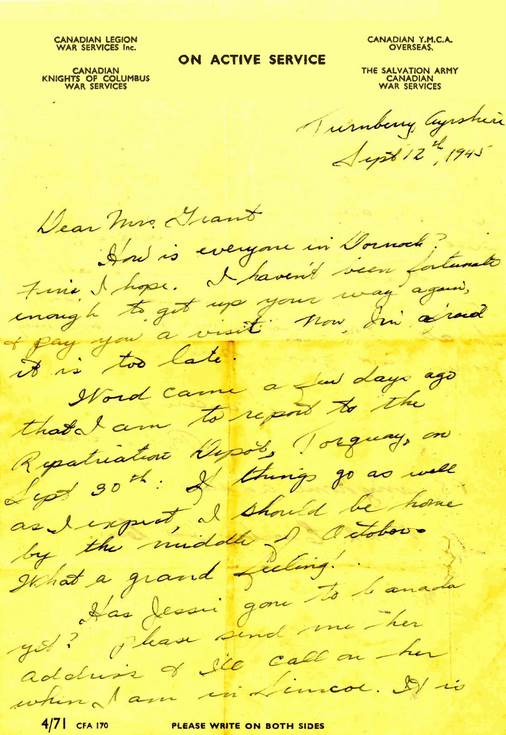 CANADIAN LEGION
WAR SERVICES Inc.
CANADIAN
KNIGHTS OF COLUMBUS
WAR SERVICES
ON ACTIVE SERVICE
CANADIAN Y.M.C.A.
OVERSEAS.
THE SALVATION ARMY
CANADIAN
WAR SERVICES
Turnberry, Ayrshire
Sept 12th, 1945
Dear Mrs. Grant
How is everyone in Dornoch?
Fine I hope. I haven't been fortunate
enough to get up your way again,
& pay you a visit. Now, I'm afraid
it is too late.
Word came a few days ago
that I am to report to the
Repatriation Depot, Torquay, on
Sept 30th. If things go as well
as I expect, I should be home
by the middle of October.
What a grand feeling!
Has Jessie gone to Canada
yet? Please send me her
address & I'll call on her
when I am in Simcoe. It is
4/71 CFA 170 PLEASE WRITE ON BOTH SIDES